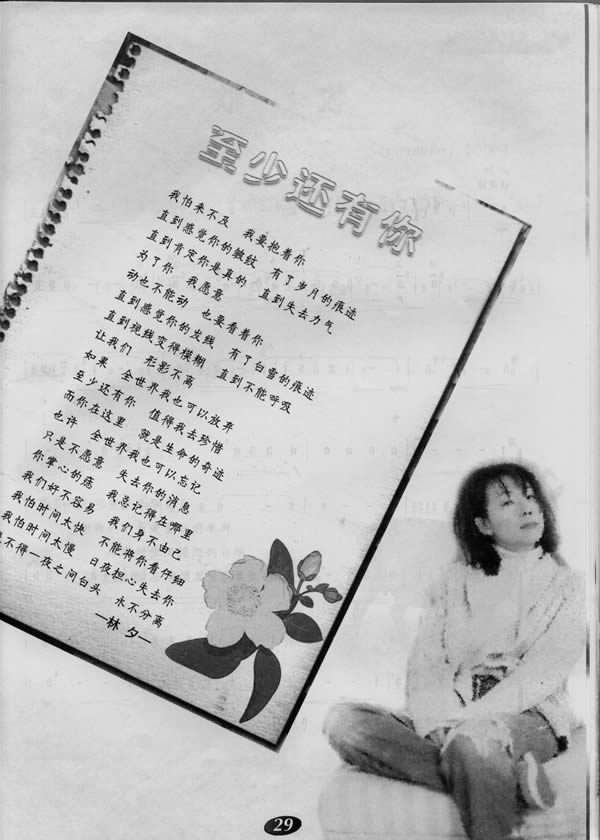 至少还有你
我怕来不及 我要抱着你
直到感觉你的皱纹 有了岁月的痕迹
直到肯定你是真的 直到失去力气
为了你 我愿意
动也不能动 也要看着你
直到感觉你的发线 有了白雪的痕迹
直到视线变得模糊 直到不能呼吸
让我们 形影不离
如果 全世界我也可以放弃
至少还有你 值得我去珍惜
而你在这里 就是生命的奇迹
也许 全世界我也可以忘记
只是不愿意 失去你的消息
你掌心的痣 我总记得在哪里
我们好不容易 我们身不由己
我怕时间太快 不能将你看仔细
我怕时间太慢 日夜担心失去你
不得一夜之间白头 永不分离
—林 夕—
29